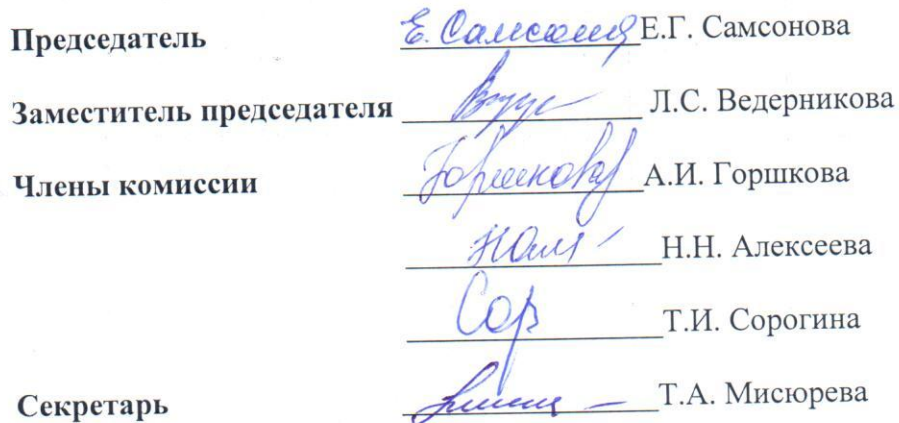 Председатель Е. Самсонов Е.Г. Самсонова
Заместитель председателя Л.С. Ведерникова
Члены комиссии Горшкова А.И. Горшкова
Н.Н. Алексеева
Сор Т.И. Сорогина
Секретарь Т.А. Мисюрева